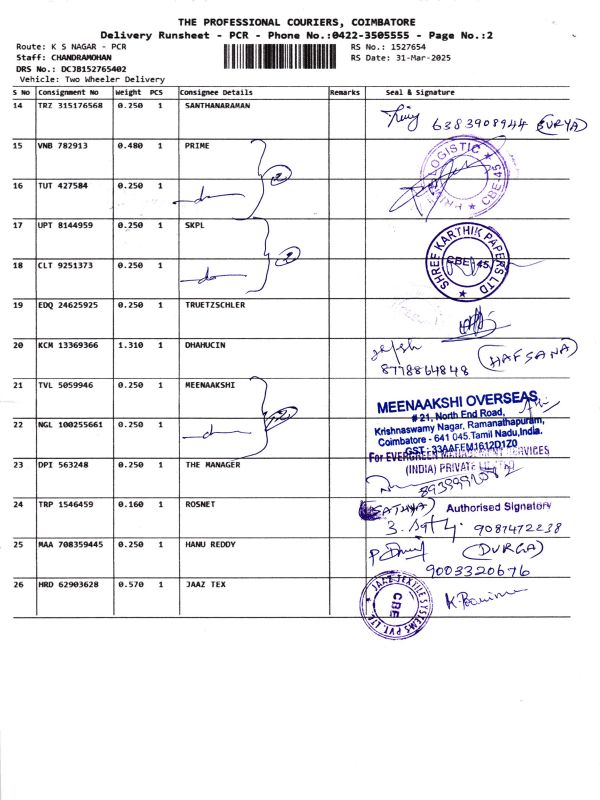 THE PROFESSIONAL COURIERS, COIMBATORE
Delivery Runsheet - PCR - Phone No.:0422-3505555 - Page No.:2
Route: K S NAGAR - PCR
RS No.: 1527654
Staff: CHANDRAMOHAN
RS Date: 31-Mar-2025
DRS No.: DCJB152765402
Vehicle: Two Wheeler Delivery
S No Consignment No Weight PCS Consignee Details Remarks Seal & Signature
14 TRZ 315176568 0.250 1 SANTHANARAMAN
6383908944 (SURYA)
15 VNB 782913 0.480 1 PRIME
LOGISTIC CBE-45
16 TUT 427584 0.250 1
2
17 UPT 8144959 0.250 1 SKPL
SHREE KARTHIK PAPERS LTD
CBE 45
18 CLT 9251373 0.250 1
2
19 EDQ 24625925 0.250 1 TRUETZSCHLER
20 KCM 13369366 1.310 1 DHAHUCIN
(HAFSANA)
8778864848
21 TVL 5059946 0.250 1 MEENAAKSHI
MEENAAKSHI OVERSEAS
# 21, North End Road,
Krishnaswamy Nagar, Ramanathapuram,
Coimbatore - 641 045.Tamil Nadu,India.
GST : 33AAFEM1612D1Z0
22 NGL 100255661 0.250 1
For EVERGREEN MANAGEMENT SERVICES
(INDIA) PRIVATE LIMITED
23 DPI 563248 0.250 1 THE MANAGER
24 TRP 1546459 0.160 1 ROSNET
(SATHYA) Authorised Signatory
9087472238
25 MAA 708359445 0.250 1 HANU REDDY
(DURGA)
9003320676
26 HRD 62903628 0.570 1 JAAZ TEX
JAAZ TEXTILE SYSTEMS PVT. LTD.
CBE